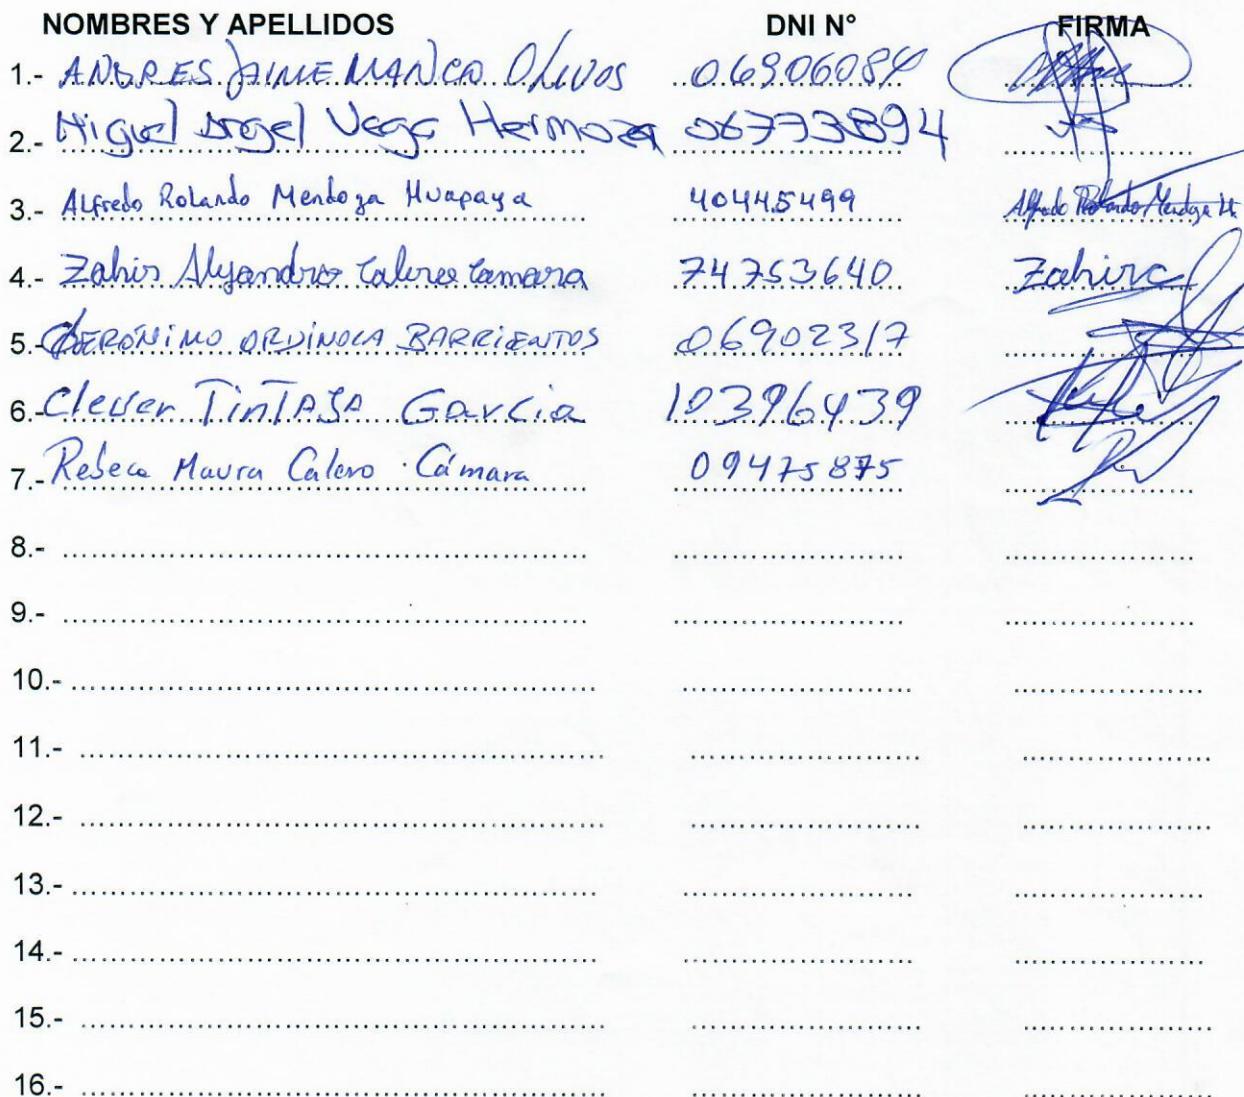 NOMBRES Y APELLIDOS DNI N° FIRMA
1.- ANDRES JAIME MANCO Olivos 06906084
2.- Miguel Angel Vega Hermoza 06773894
3.- Alfredo Rolando Mendoza Huapaya 40445499 Alfredo Rolando Mendoza H.
4.- Zahir Alejandro Calero Camara 74753640 Zahirc
5.- GERÓNIMO ORDINOLA BARRIENTOS 06902317
6.- Clever TinTAJA Garcia 10396439
7.- Rebeca Maura Calero Cámara 09475875
8.-
9.-
10.-
11.-
12.-
13.-
14.-
15.-
16.-